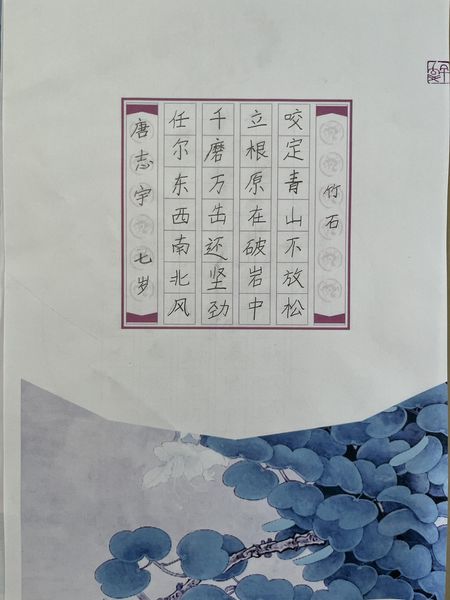 竹石
咬定青山不放松
立根原在破岩中
千磨万击还坚劲
任尔东西南北风
唐志宇 七岁